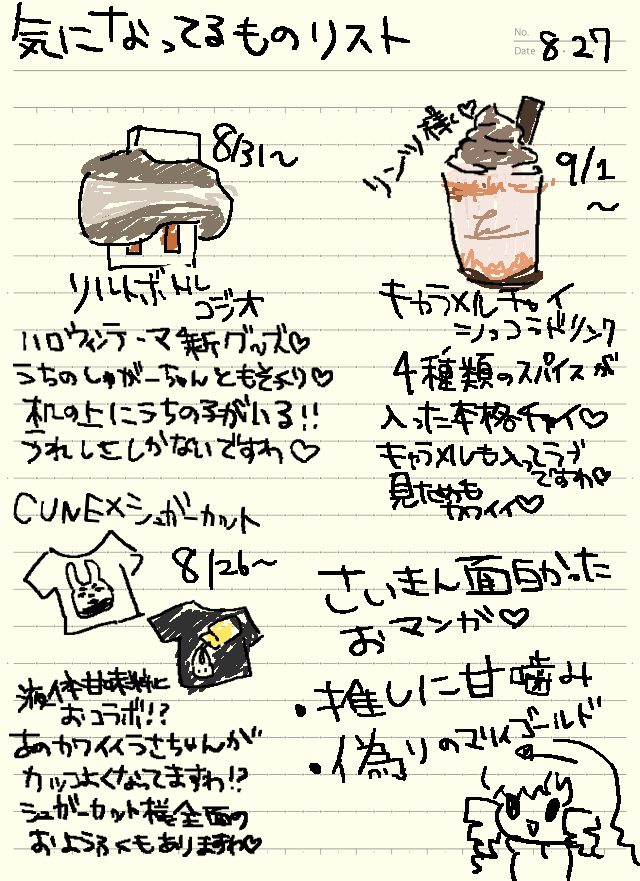 気になってるものリスト
No.
Date 8・27
8/31〜
リルトボトル
コジオ
ハロウィンテーマ新グッズ♡
うちのしゅがーちゃんともそっくり♡
机の上にうちの子がいる!!
うれしさしかないですわ♡
リンツ様♡
9/1
〜
キャラメルチャイ
ショコラドリンク
4種類のスパイスが
入った本格チャイ♡
キャラメルも入ってラブ
ですわ♡
見ためも
カワイイ♡
CUNE×シュガーカット
8/26〜
液体甘味料と
おコラボ!?
あのカワイイうさちゃんが
カッコよくなってますわ!?
シュガーカット様全面の
おようふくもありますわ♡
さいきん面白かった
おマンガ♡
・推しに甘噛み
・偽りのマリィゴールド